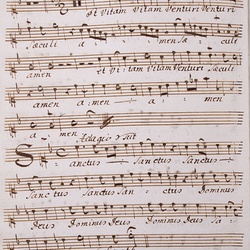 et Vitam Vitam Venturi Venturi
Sæculi a men sæ culi
amen et Vitam Vitam Venturi Sæculi
amen a men a men
a men Adagio
Sanctus Sanctus Sanctus
Sanctus Sanctus San ctus Dominus
Deus Dominus Deus Dominus Deus Sa